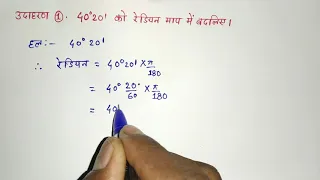 उदाहरण ①. 40°20' को रेडियन माप में बदलिए।
हल:- 40° 20'
∴ रेडियन = 40°20' × π/180
= 40° 20°/60 × π/180
= 40